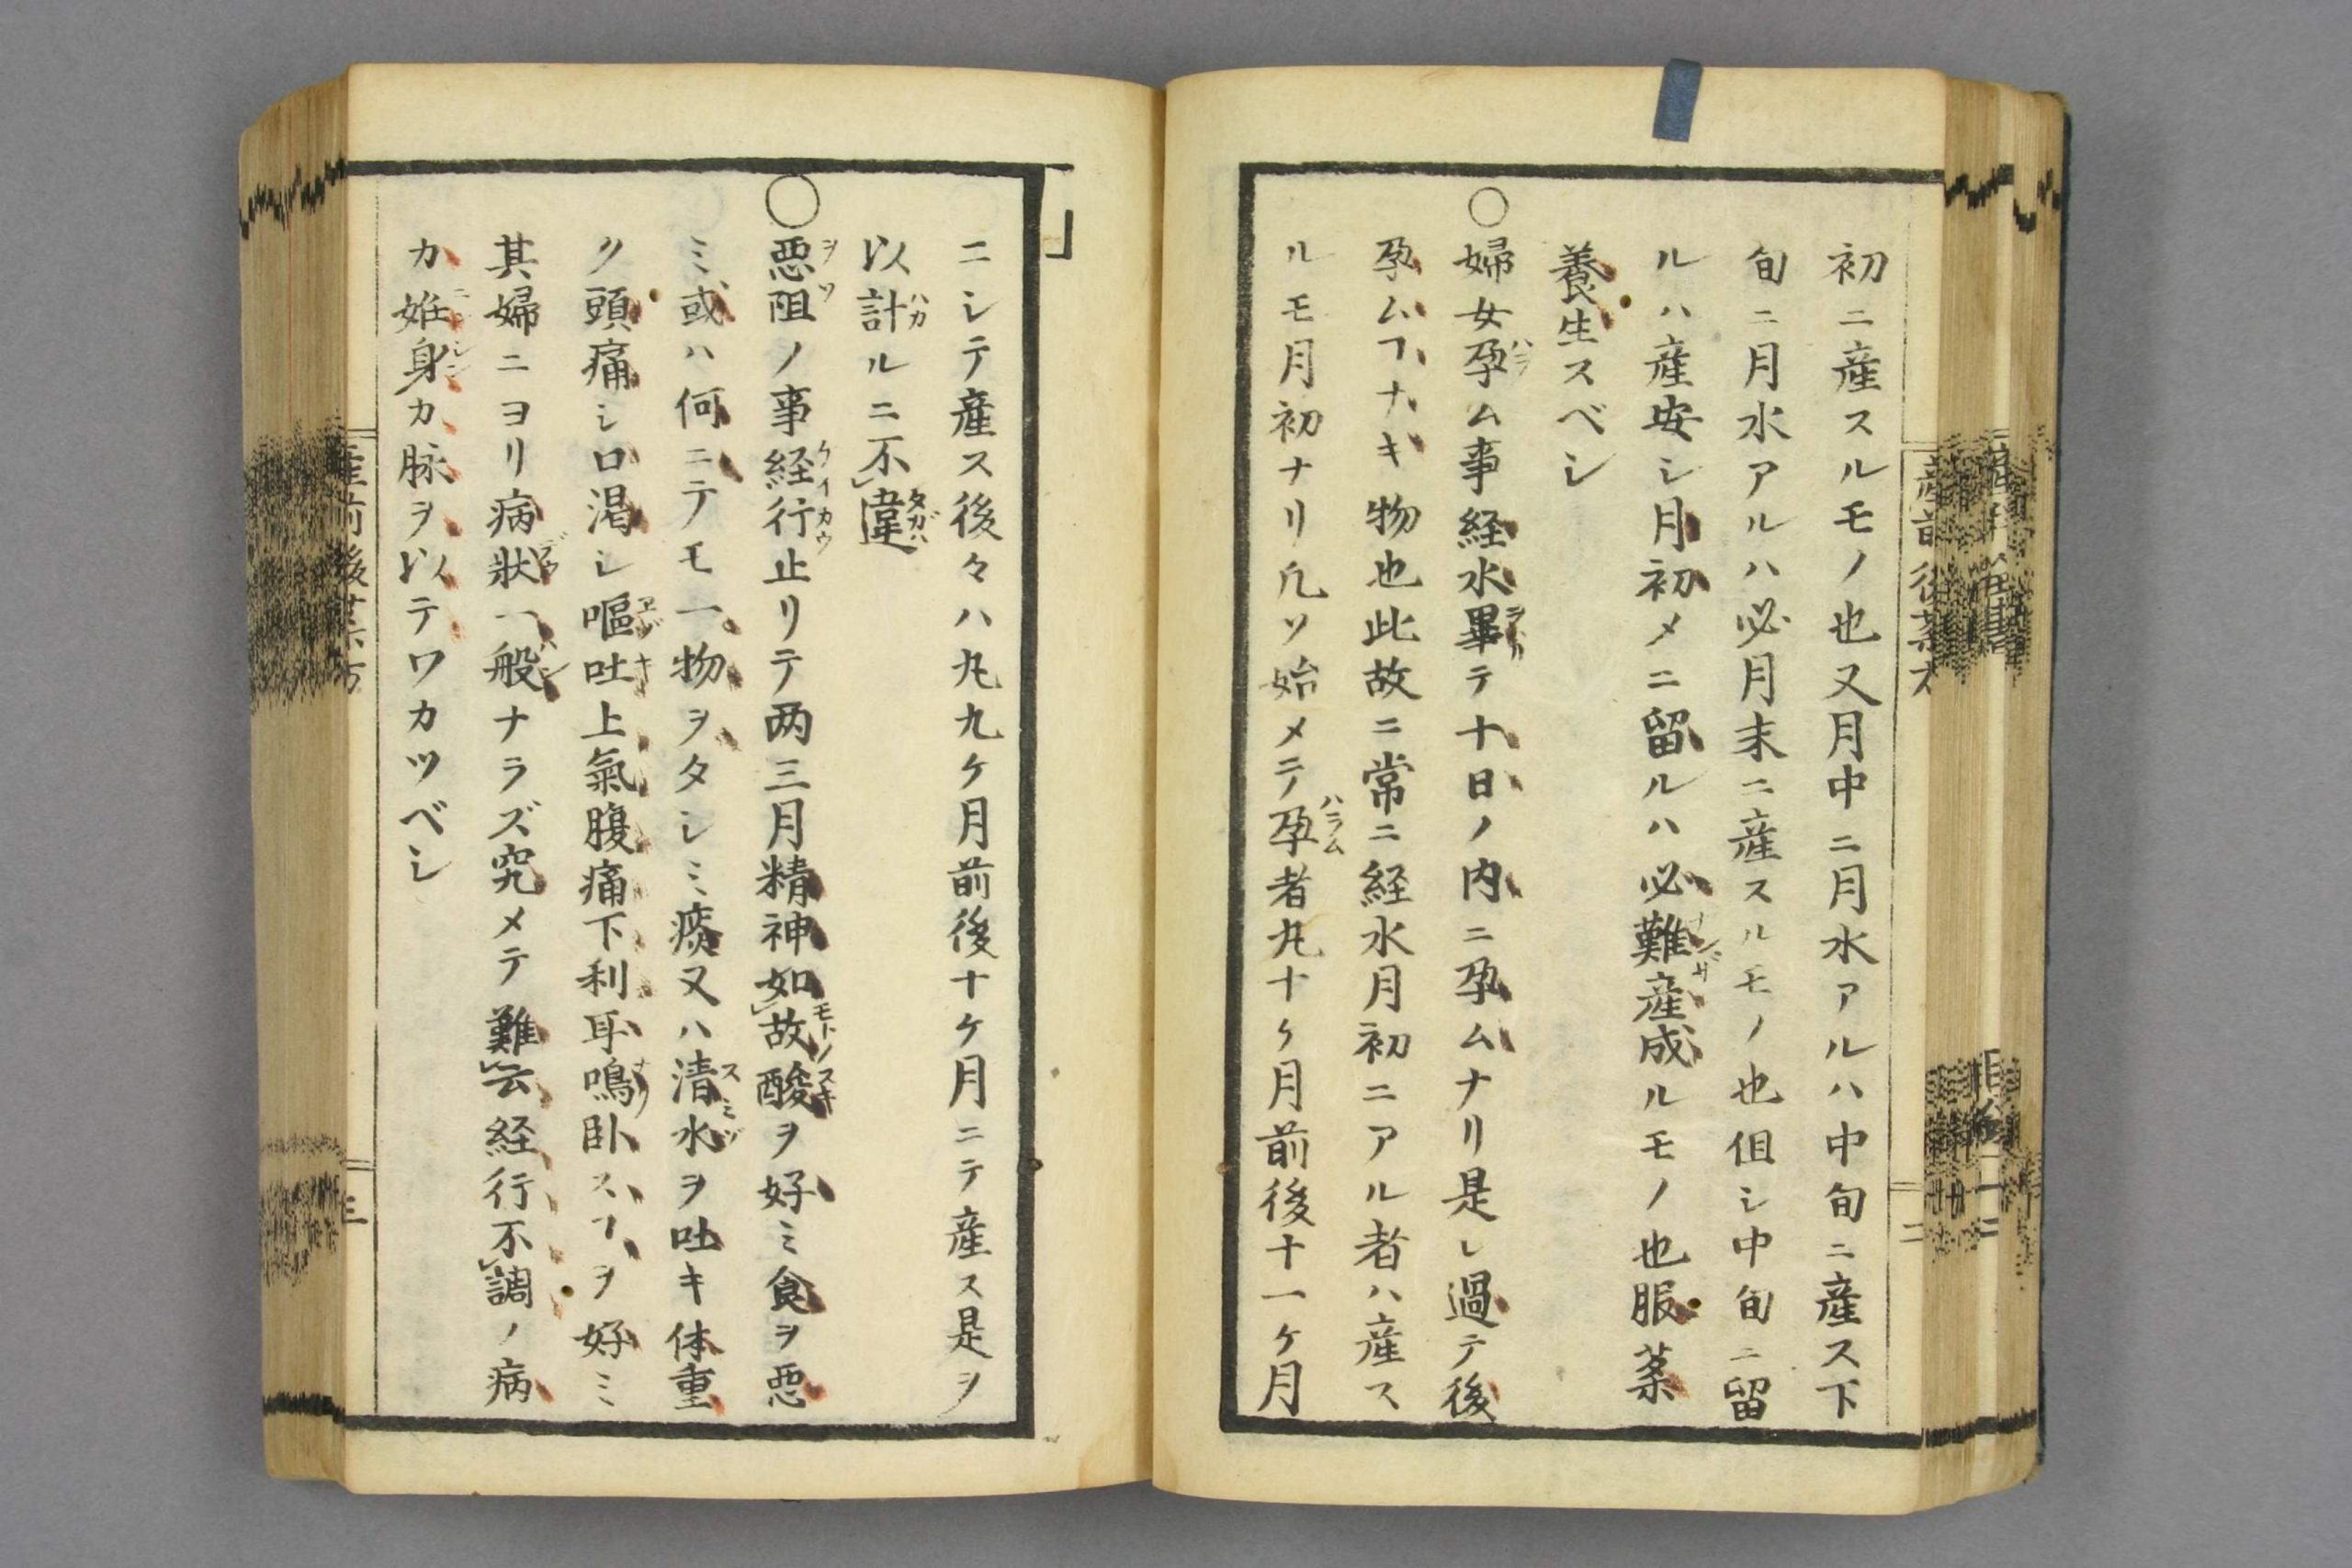 初ニ産スルモノ也又月中ニ月水アルハ中旬ニ産ス下
旬ニ月水アルハ必月末ニ産スルモノ也但シ中旬ニ留
ルハ産安シ月初メニ留ルハ必難産成ルモノ也服薬
養生スベシ
○婦女孕ム事経水畢テ十日ノ内ニ孕ムナリ是レ過テ後
孕ムヿナキ物也此故ニ常ニ経水月初ニアル者ハ産ス
ルモ月初ナリ凡ソ始メテ孕者凡十ヶ月前後十一ヶ月
ニシテ産ス後々ハ凡九ヶ月前後十ヶ月ニテ産ス是ヲ
以計ルニ不違
○悪阻ノ事経行止リテ两三月精神如故酸ヲ好ミ食ヲ悪
ミ或ハ何ニテモ一物ヲタシミ痰又ハ清水ヲ吐キ体重
ク頭痛シ口渇シ嘔吐上氣腹痛下利耳鳴臥スヿヲ好ミ
其婦ニヨリ病狀一般ナラズ究メテ難云経行不調ノ病
カ姙身カ脉ヲ以テワカツベシ
産前後
三